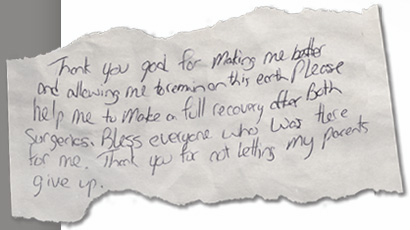 Thank you god for making me better
and allowing me to remin on this earth Please
help me to make a full recovery after Both
Surgeries. Bless everyone who was there
for me. Thank you for not letting my parents
give up.